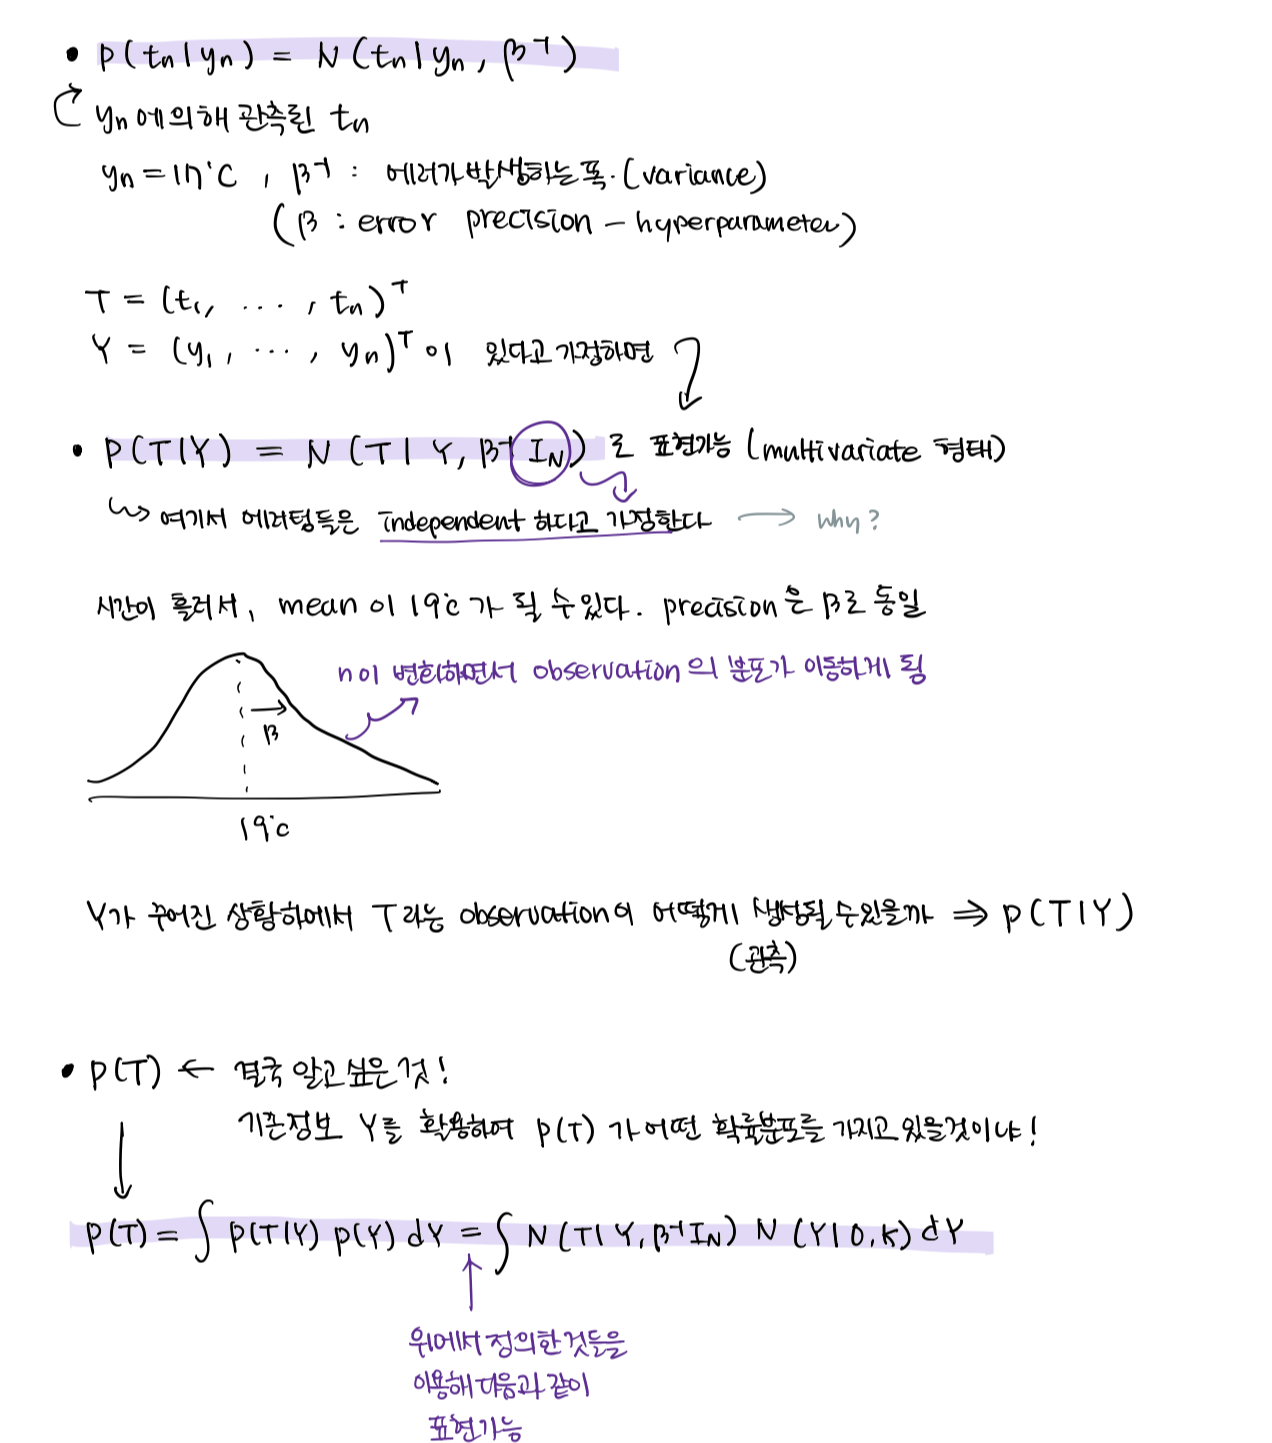 • P(tn|yn) = N(tn|yn, β⁻¹)
yn에 의해 관측된 tn
yn = 17°C , β⁻¹ : 에러가 발생하는 폭. (variance)
(β : error precision - hyperparameter)
T = (t₁, ··· , tn)ᵀ
Y = (y₁, ··· , yn)ᵀ 이 있다고 가정하면
• P(T|Y) = N(T|Y, β⁻¹ I_N) 로 표현가능 (multivariate 형태)
↪ 여기서 에러텀들은 independent 하다고 가정한다 → why?
시간이 흘러서, mean이 19°c가 될 수 있다. precision은 β로 동일
n이 변화하면서 observation의 분포가 이동하게 됨
β
19°c
Y가 주어진 상황하에서 T라는 observation이 어떻게 생성될 수 있을까 ⇒ P(T|Y)
(관측)
• P(T) ← 결국 알고 싶은 것!
기존정보 Y를 활용하여 P(T)가 어떤 확률분포를 가지고 있을것이냐!
P(T) = ∫ P(T|Y) P(Y) dY = ∫ N(T|Y, β⁻¹I_N) N(Y|0, K) dY
위에서 정의한 것들을
이용해 다음과 같이
표현가능